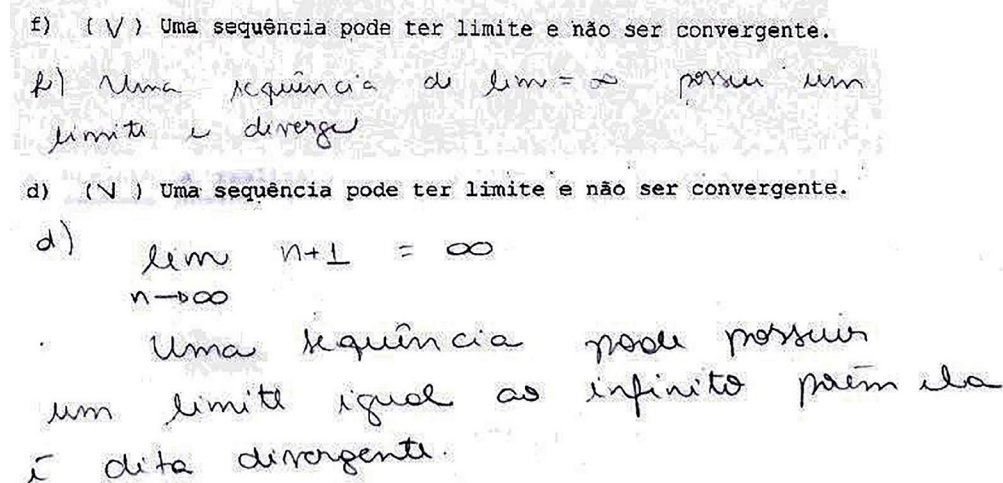 f) (V) Uma sequência pode ter limite e não ser convergente.
f) Uma sequência de lim = ∞ possui um
limite e diverge
d) (V) Uma sequência pode ter limite e não ser convergente.
d) lim n+1 = ∞
n→∞
Uma sequência pode possuir
um limite igual ao infinito porém ela
é dita divergente.